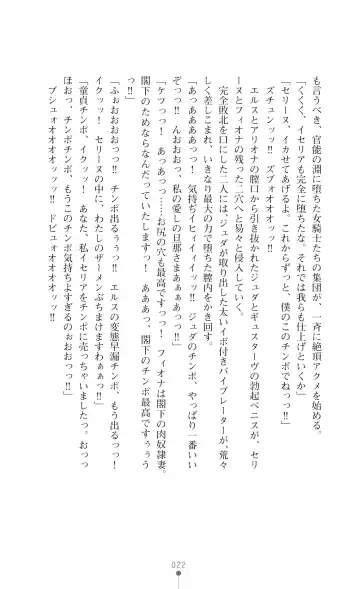 も言うべき、官能の淵に堕ちた女騎士たちの集団が、一斉に絶頂アクメを始める。
「くくく、イセリアも完全に堕ちたな。それでは我らも仕上げといくか」
「セリーヌ、イカせてあげるよ。これからずっと、僕のこのチンポでねっっ‼」
ズチュンッッ‼　ズブォオオオッッ‼
エルスとアリオナの膣口から引き抜かれたジュダとギュスターヴの勃起ペニスが、セリ
ーヌとフィオナの残った二穴へと易々と侵入していく。
完全敗北を口にした二人には、ジュダが取り出した太いイボ付きバイブレーターが、荒々
しく差しこまれ、いきなり最大の力で堕ちた膣内をかき回す。
「あっあああああっっ！　気持ちイヒィイイイッッ‼　ジュダのチンポ、やっぱり一番いい
ぞっっ‼　んおおおっ、私の愛しの旦那さまあぁぁあっっ‼」
「ケツっっ！　あっあっ……お尻の穴も最高ですっっ！　フィオナは閣下の肉奴隷妻。
閣下のためならなんだっていたしますっ！　あああっ、閣下のチンポ最高ですぅぅう
っ‼」
「ふぉおおおおっっ‼　チンポ出るぅぅっ‼　エルスの変態早漏チンポ、もう出るっっ！
イクッッ！　セリーヌの中に、わたしのザーメンぶちまけますわぁぁっっ‼」
「童貞チンポ、イクッッ！　あなた、私イセリアを売っちゃいましたっ。おっっ
ほおっ、チンポチンポ、もうこのチンポ気持ちよすぎるのぉおおっっ‼」
ブシュオオオオオッッッ‼　ドビュオオオオオッッ‼
022